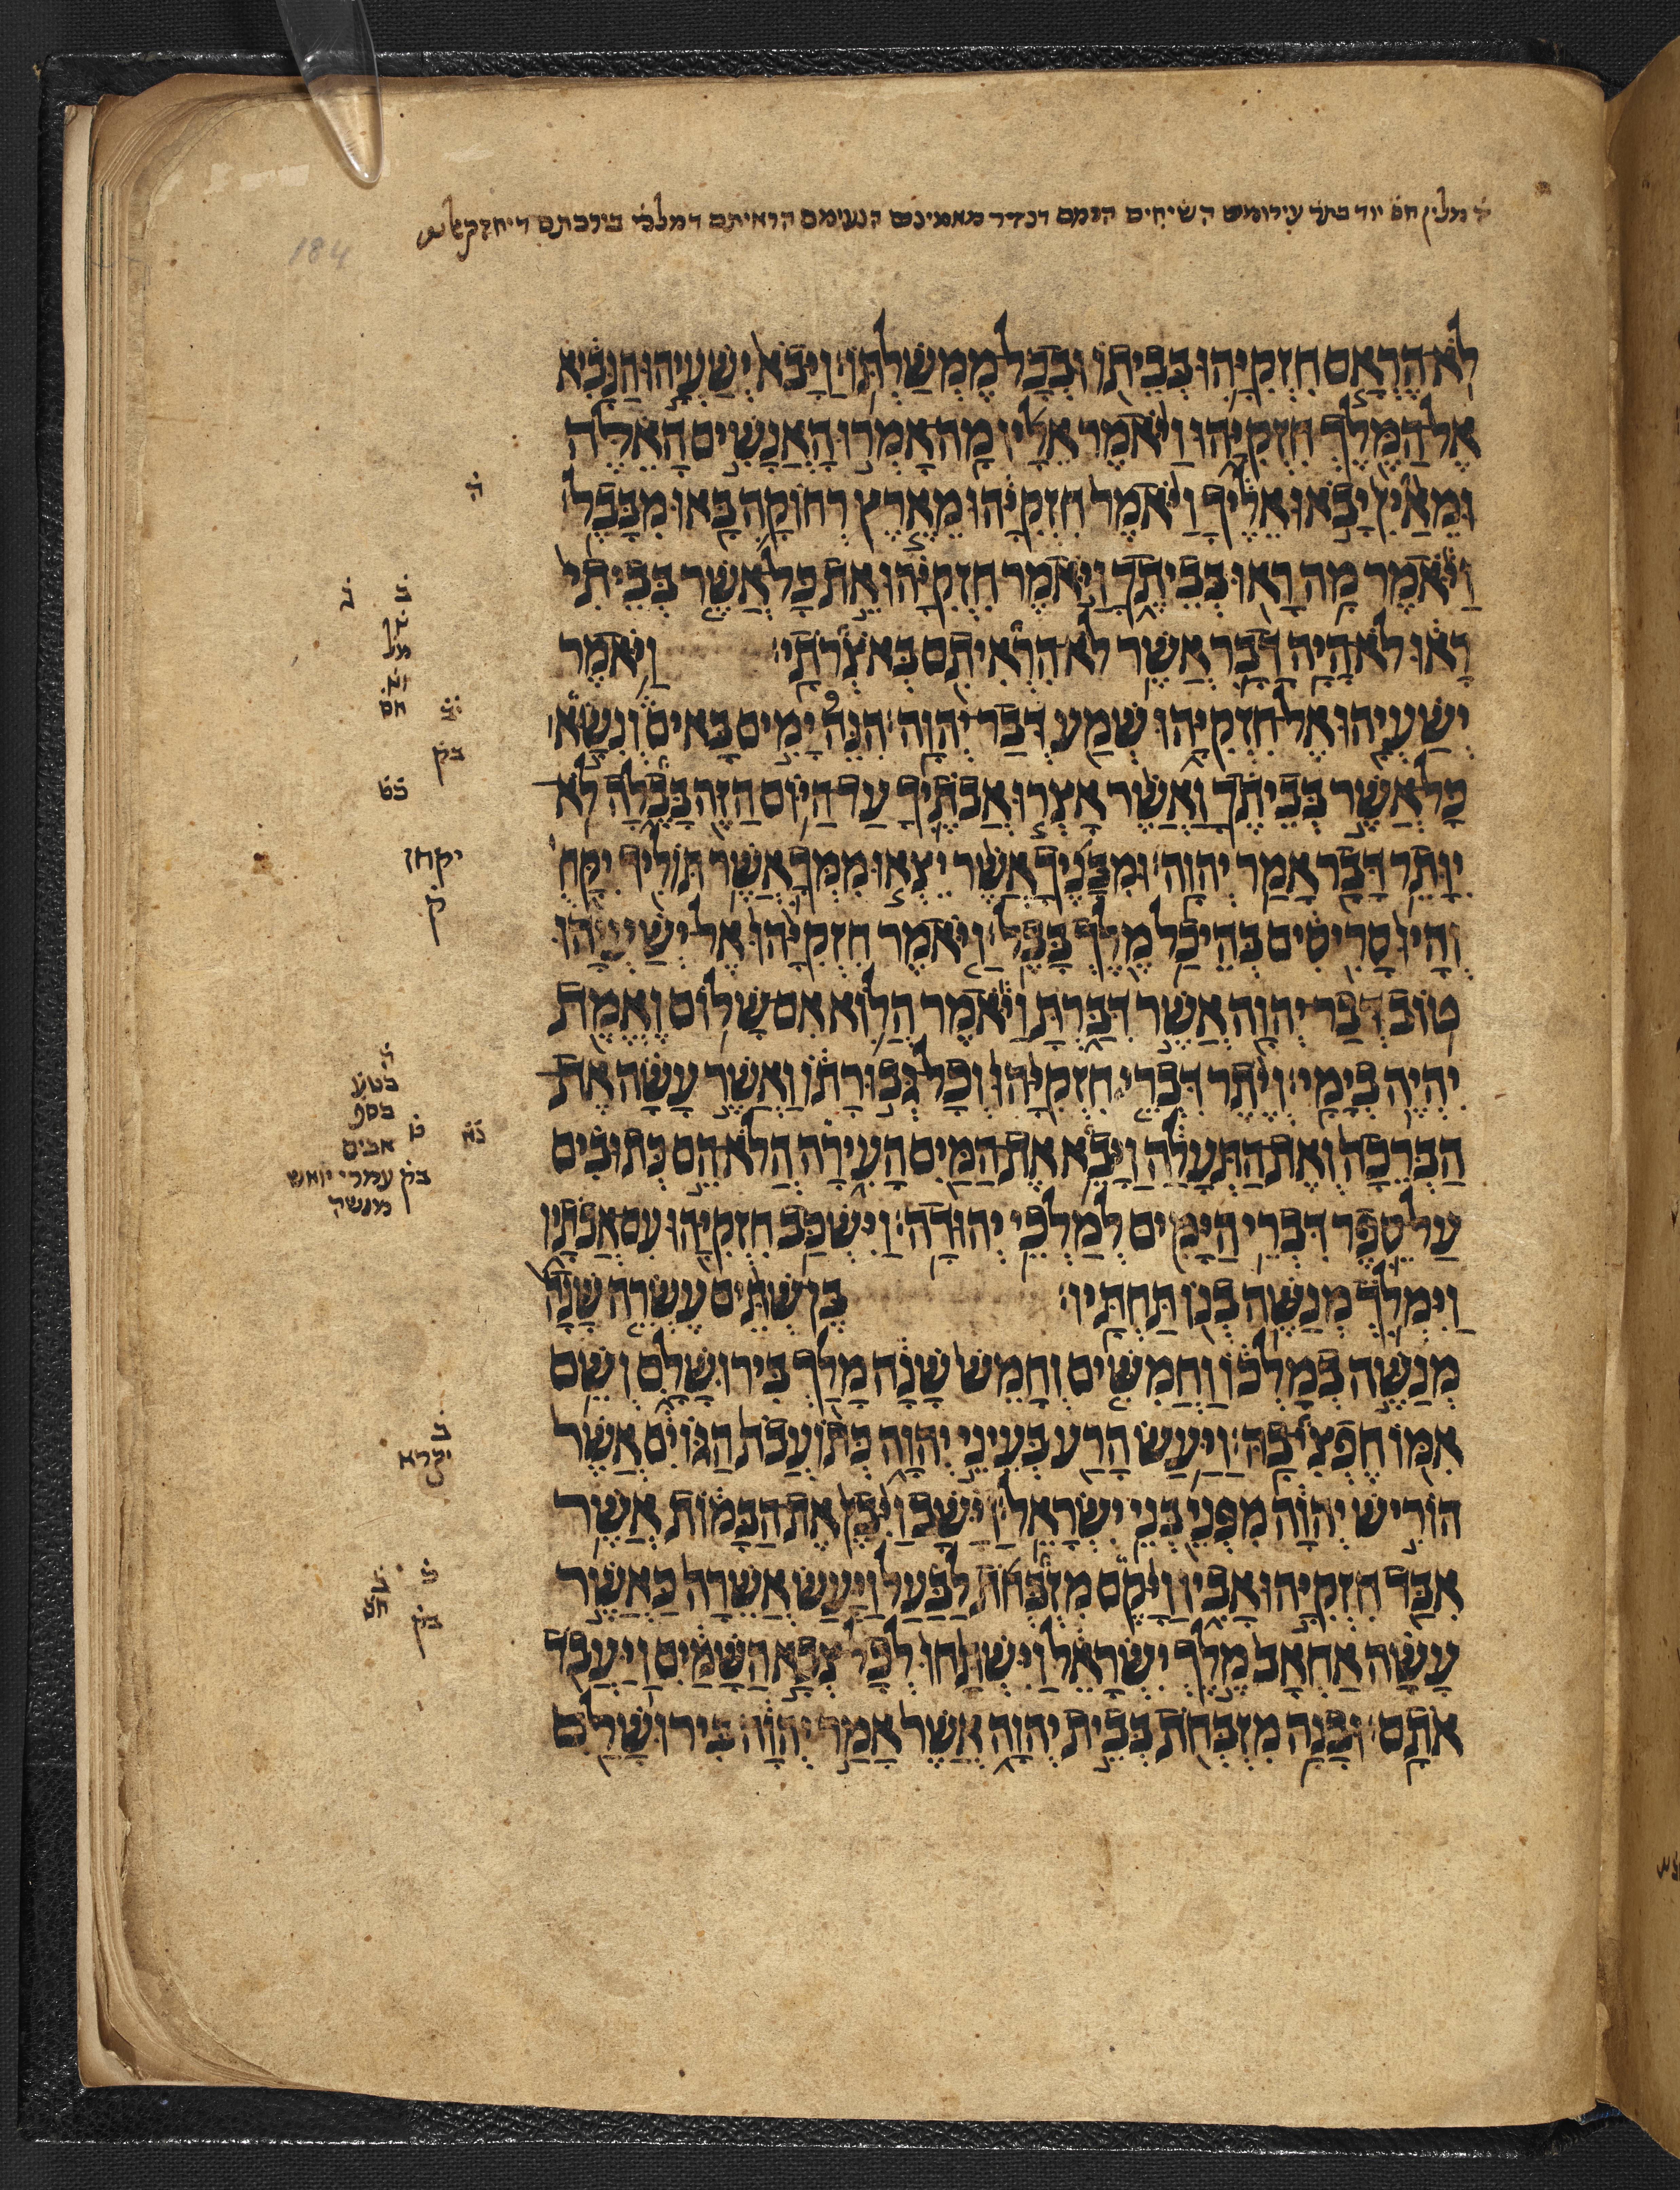 לֹא הֶרְאָם חִזְקִיָּהוּ בְּבֵיתוֹ וּבְכָל מֶמְשַׁלְתּוֹ׃ וַיָּבֹא יְשַׁעְיָהוּ הַנָּבִיא
אֶל הַמֶּלֶךְ חִזְקִיָּהוּ וַיֹּאמֶר אֵלָיו מָה אָמְרוּ הָאֲנָשִׁים הָאֵלֶּה
וּמֵאַיִן יָבֹאוּ אֵלֶיךָ וַיֹּאמֶר חִזְקִיָּהוּ מֵאֶרֶץ רְחוֹקָה בָּאוּ מִבָּבֶל׃
וַיֹּאמֶר מָה רָאוּ בְּבֵיתֶךָ וַיֹּאמֶר חִזְקִיָּהוּ אֵת כָּל אֲשֶׁר בְּבֵיתִי
רָאוּ לֹא הָיָה דָבָר אֲשֶׁר לֹא הִרְאִיתִם בְּאֹצְרֹתָי׃ וַיֹּאמֶר
יְשַׁעְיָהוּ אֶל חִזְקִיָּהוּ שְׁמַע דְּבַר יְהוָה׃ הִנֵּה יָמִים בָּאִים וְנִשָּׂא
כָּל אֲשֶׁר בְּבֵיתֶךָ וַאֲשֶׁר אָצְרוּ אֲבֹתֶיךָ עַד הַיּוֹם הַזֶּה בָּבֶלָה לֹא
יִוָּתֵר דָּבָר אָמַר יְהוָה׃ וּמִבָּנֶיךָ אֲשֶׁר יֵצְאוּ מִמְּךָ אֲשֶׁר תּוֹלִיד יִקָּח
וְהָיוּ סָרִיסִים בְּהֵיכַל מֶלֶךְ בָּבֶל׃ וַיֹּאמֶר חִזְקִיָּהוּ אֶל יְשַׁעְיָהוּ
טוֹב דְּבַר יְהוָה אֲשֶׁר דִּבַּרְתָּ וַיֹּאמֶר הֲלוֹא אִם שָׁלוֹם וֶאֱמֶת
יִהְיֶה בְיָמָי׃ וְיֶתֶר דִּבְרֵי חִזְקִיָּהוּ וְכָל גְּבוּרָתוֹ וַאֲשֶׁר עָשָׂה אֶת
הַבְּרֵכָה וְאֶת הַתְּעָלָה וַיָּבֵא אֶת הַמַּיִם הָעִירָה הֲלֹא הֵם כְּתוּבִים
עַל סֵפֶר דִּבְרֵי הַיָּמִים לְמַלְכֵי יְהוּדָה׃ וַיִּשְׁכַּב חִזְקִיָּהוּ עִם אֲבֹתָיו
וַיִּמְלֹךְ מְנַשֶּׁה בְנוֹ תַּחְתָּיו׃ בֶּן שְׁתֵּים עֶשְׂרֵה שָׁנָה
מְנַשֶּׁה בְמָלְכוֹ וַחֲמִשִּׁים וְחָמֵשׁ שָׁנָה מָלַךְ בִּירוּשָׁלִָם וְשֵׁם
אִמּוֹ חֶפְצִי בָהּ׃ וַיַּעַשׂ הָרַע בְּעֵינֵי יְהוָה כְּתוֹעֲבֹת הַגּוֹיִם אֲשֶׁר
הוֹרִישׁ יְהוָה מִפְּנֵי בְּנֵי יִשְׂרָאֵל׃ וַיָּשָׁב וַיִּבֶן אֶת הַבָּמוֹת אֲשֶׁר
אִבַּד חִזְקִיָּהוּ אָבִיו וַיָּקֶם מִזְבְּחֹת לַבַּעַל וַיַּעַשׂ אֲשֵׁרָה כַּאֲשֶׁר
עָשָׂה אַחְאָב מֶלֶךְ יִשְׂרָאֵל וַיִּשְׁתַּחוּ לְכָל צְבָא הַשָּׁמַיִם וַיַּעֲבֹד
אֹתָם׃ וּבָנָה מִזְבְּחֹת בְּבֵית יְהוָה אֲשֶׁר אָמַר יְהוָה בִּירוּשָׁלִַם
184
ה̇
חס̇
בק
יקחו
ק̇
אבים
בק̇ עמרי יואש
מנשה
ב̇
יקרא
בק̇